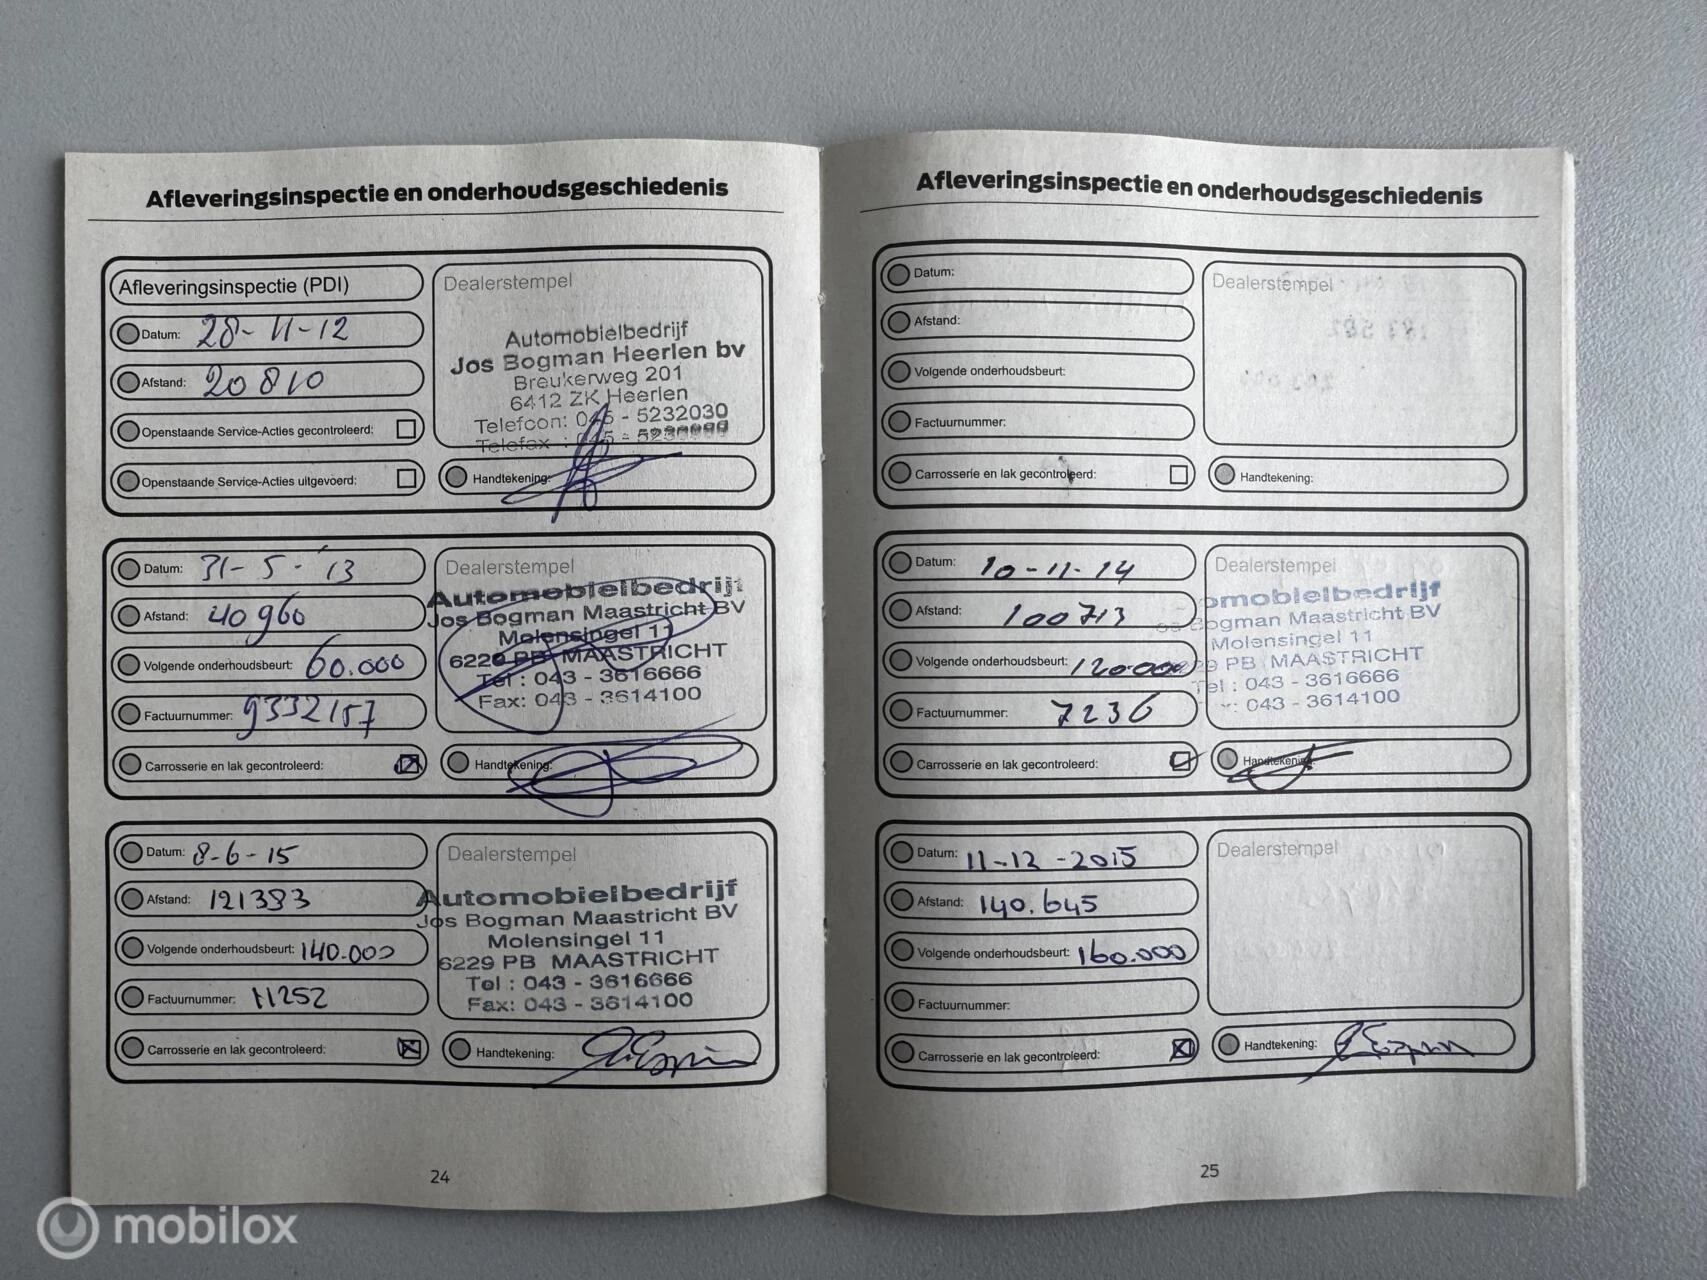 Afleveringsinspectie en onderhoudsgeschiedenis
Afleveringsinspectie (PDI)
Datum: 28-11-12
Afstand: 20810
Openstaande Service-Acties gecontroleerd:
Openstaande Service-Acties uitgevoerd:
Dealerstempel
Automobielbedrijf
Jos Bogman Heerlen bv
Breukerweg 201
6412 ZK Heerlen
Telefoon: 045 - 5232030
Telefax : 045 -
Handtekening:
Datum: 31-5-'13
Afstand: 40960
Volgende onderhoudsbeurt: 60.000
Factuurnummer: 9332157
Carrosserie en lak gecontroleerd:
Dealerstempel
Automobielbedrijf
Jos Bogman Maastricht BV
Molensingel 11
6229 PB MAASTRICHT
Tel : 043 - 3616666
Fax: 043 - 3614100
Handtekening:
Datum: 8-6-15
Afstand: 121383
Volgende onderhoudsbeurt: 140.000
Factuurnummer: 11252
Carrosserie en lak gecontroleerd:
Dealerstempel
Automobielbedrijf
Jos Bogman Maastricht BV
Molensingel 11
6229 PB MAASTRICHT
Tel : 043 - 3616666
Fax: 043 - 3614100
Handtekening:
24
Afleveringsinspectie en onderhoudsgeschiedenis
Datum:
Afstand:
Volgende onderhoudsbeurt:
Factuurnummer:
Carrosserie en lak gecontroleerd:
Dealerstempel
Handtekening:
Datum: 10-11-14
Afstand: 100713
Volgende onderhoudsbeurt: 120.000
Factuurnummer: 7236
Carrosserie en lak gecontroleerd:
Dealerstempel
omobielbedrijf
Bogman Maastricht BV
Molensingel 11
PB MAASTRICHT
Tel : 043 - 3616666
: 043 - 3614100
Handtekening:
Datum: 11-12-2015
Afstand: 140.645
Volgende onderhoudsbeurt: 160.000
Factuurnummer:
Carrosserie en lak gecontroleerd:
Dealerstempel
Handtekening:
25
mobilox